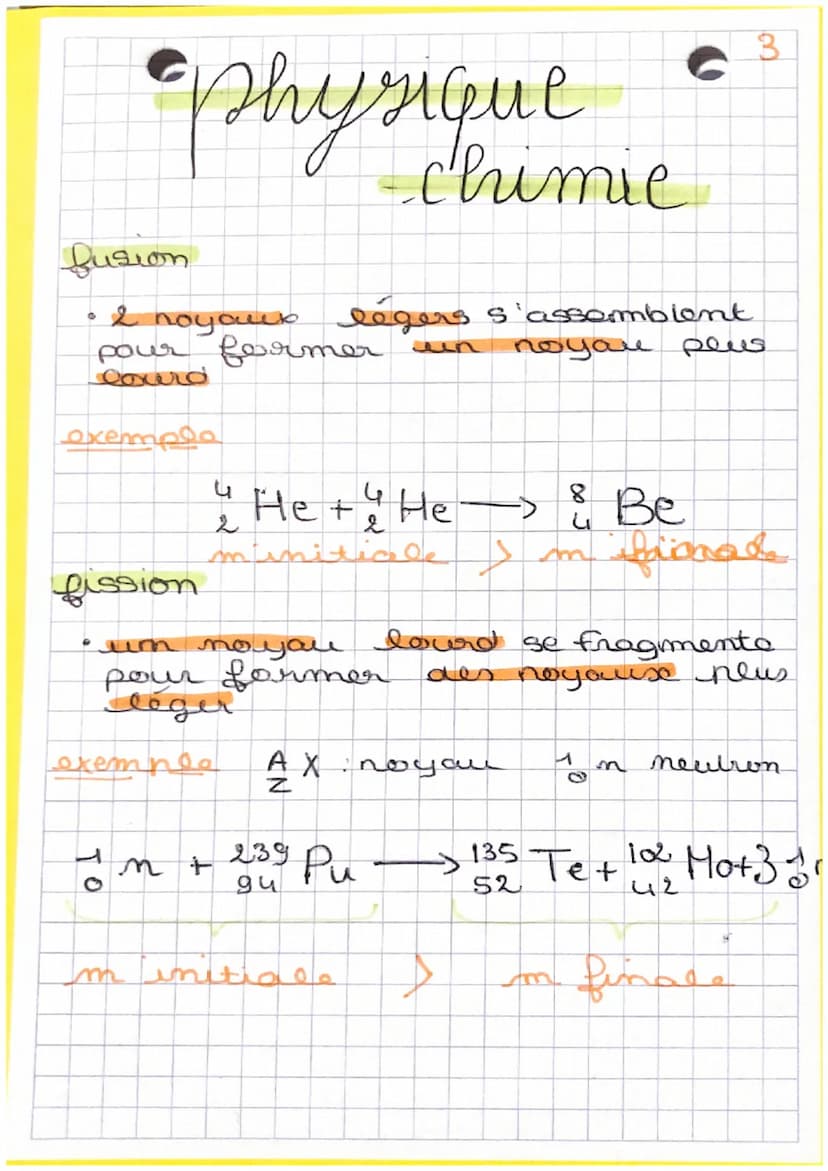 3
physique
-chimie
fusion
• 2 noyaux légers s'assemblent
pour former un noyau plus
lourd
exemple
⁴₂He + ⁴₂He → ⁸₄Be
m initiale > m finale
fission
• un noyau lourd se fragmente
pour former des noyaux plus
léger
exemple ᴬ_Z X : noyau ¹₀n neutron
¹₀n + ²³⁹₉₄Pu → ¹³⁵₅₂Te + ¹⁰²₄₂Mo + 3 ¹₀n
m initiale > m finale